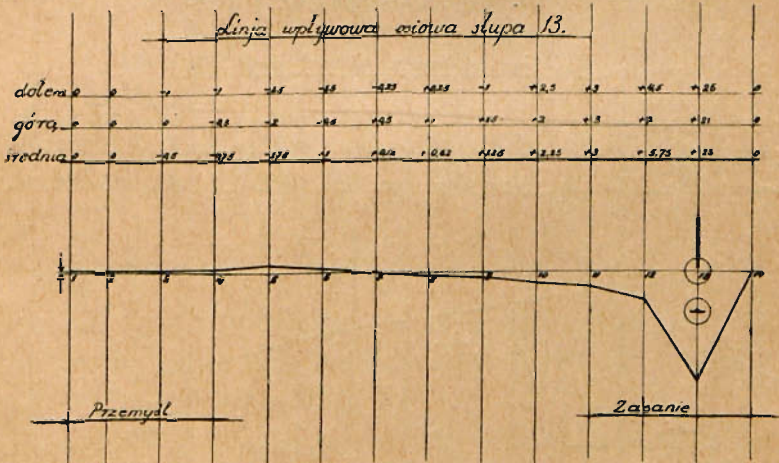 Linja wpływowa osiowa słupa 13.
dołem 0 0 -1 -1 -0,25 +0,25 -1 +2,5 +3 +4,5 +25 0
górą 0 0 0 -2 +1 +1,5 +2 +3 +21 0
średnia 0 0 -0,5 -1 +0,62 +2,25 +3 +5,75 +23 0
1 2 3 4 5 6 7 8 9 10 11 12 13 14
Przemyśl Zasanie